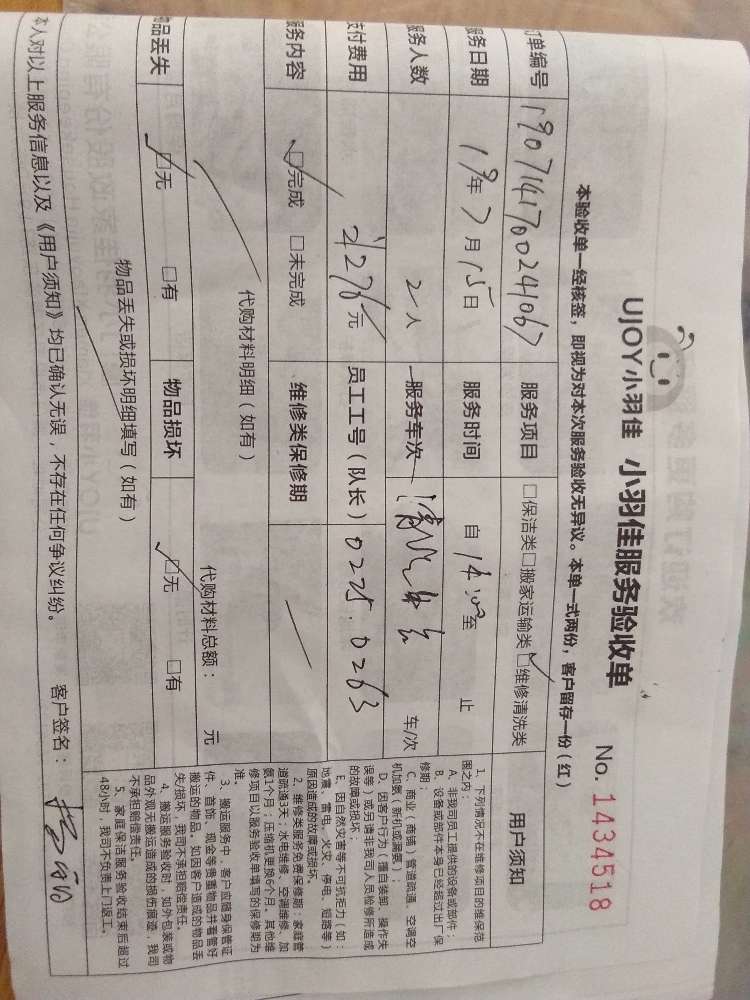 UJOY小羽佳 小羽佳服务验收单
No. 1434518
本验收单一经核签，即视为对本次服务验收无异议。本单一式两份，客户留存一份（红）
订单编号 190714170024106 服务项目 □保洁类□搬家运输类☑维修清洗类
服务日期 19年7月15日 服务时间 自14:00至 止
服务人数 2人 服务车次 车/次
支付费用 276元 员工工号（队长）0225.0263
服务内容 ☑完成 □未完成 维修类保修期
代购材料明细（如有）
代购材料总额： 元
物品丢失 ☑无 □有 物品损坏 ☑无 □有
物品丢失或损坏明细填写（如有）
本人对以上服务信息以及《用户须知》均已确认无误，不存在任何争议纠纷。 客户签名：
用户须知
1、下列情况不在维修项目的维保范
围之内：
A、非我司员工提供的设备或部件；
B、设备或部件本身已经超过出厂保
修期；
C、商业（商铺）管道疏通、空调空
机加氨（新机或漏氨）；
D、因客户行为（擅自装卸、操作失
误等）或另请非我司人员检修所造成
的故障或损坏；
E、因自然灾害等不可抗拒力（如：
地震、雷电、火灾、停电、短路等）
原因造成的故障或损坏。
2、维修类服务免费保修期：家庭管
道疏通3天；水电维修、空调维修、加
氨1个月；压缩机更换6个月。其他维
修项目以服务验收单填写的保修期为
准。
3、搬运服务中，客户应随身保管证
件、首饰、现金等贵重物品并看管好
搬运的物品。如因客户造成的物品丢
失损坏，我司不承担赔偿责任。
4、搬运服务验收时，如外包装或物
品外观无搬运造成的损伤痕迹，我司
不承担赔偿责任。
5、家庭保洁服务验收结束后超过
48小时，我司不负责上门返工。